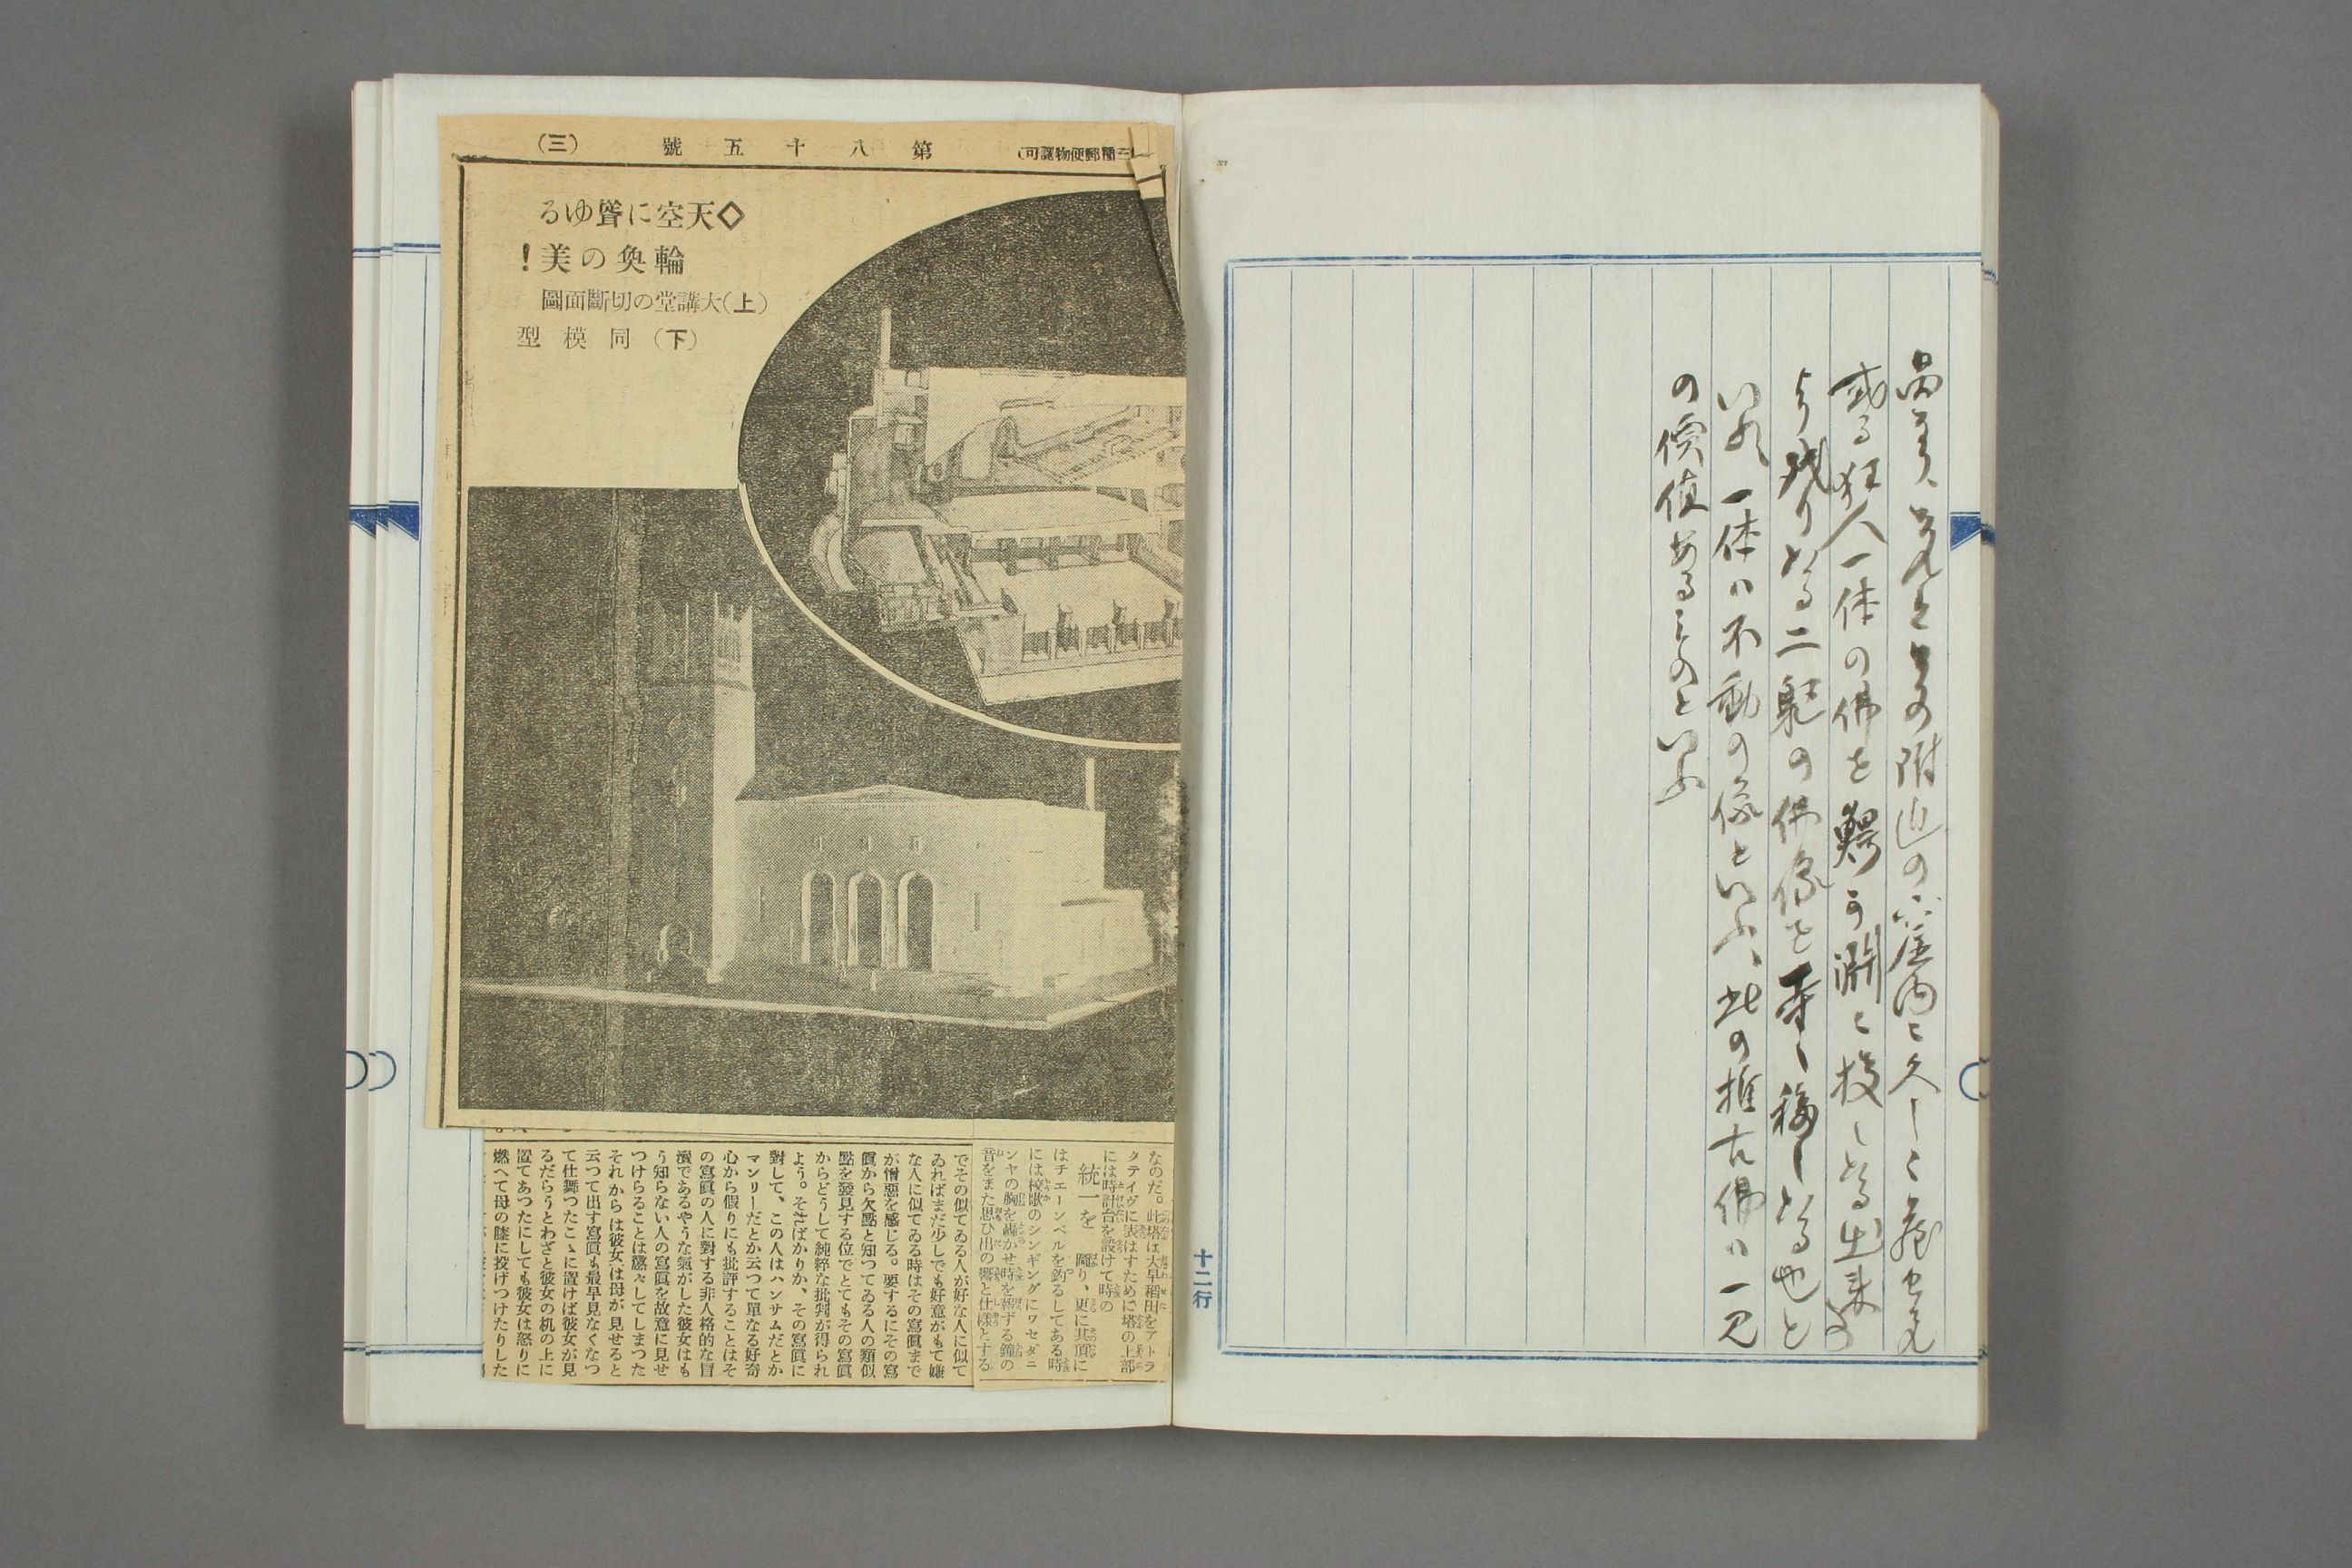 或る狂人一体の佛を鰐ヶ淵に投したる出来事
より残りたる二躯の佛像を寺へ移したる也と
いふ、一体ハ不動の像といふ、此の推古佛ハ一見
の價値あるものといふ
十二行
第八十五號
(三)
◇天空に聳ゆる
輪奐の美!
(上)大講堂の切斷面圖
(下)同模型
なのだ。此塔は大早稻田をアトラ
クテイヴに表はすために塔の上部
には時計台を設けて時の
統一を 圖り、更に其頂に
はチエーンベルを釣るしてある時
には校歌のシンギングにワセダニ
ヤの胸を轟かせ時を報ずる鐘の
音をまた思ひ出の響と仕樣とする
でその似てゐる人が好な人に似て
ゐればまだ少しでも好意がもて嫌
な人に似てゐる時はその寫眞まで
が憎惡を感じる。要するにその寫
眞から欠點と知つてゐる人の類似
點を發見する位でとてもその寫眞
からどうして純粹な批判が得られ
よう。そればかりか、その寫眞に
對して、この人はハンサムだとか
マンリーだとか云つて單なる好奇
心から假りにも批評することはそ
の寫眞の人に對する非人格的な冒
瀆であるやうな氣がした彼女はも
う知らない人の寫眞を故意に見せ
つけらることは慼々してしまつた
それからは彼女は母が見せると
云つて出す寫眞も最早見なくなつ
て仕舞つたこゝに置けば彼女が見
るだらうとわざと彼女の机の上に
置てあつたにしても彼女は怒りに
燃へて母の膝に投げつけたりした